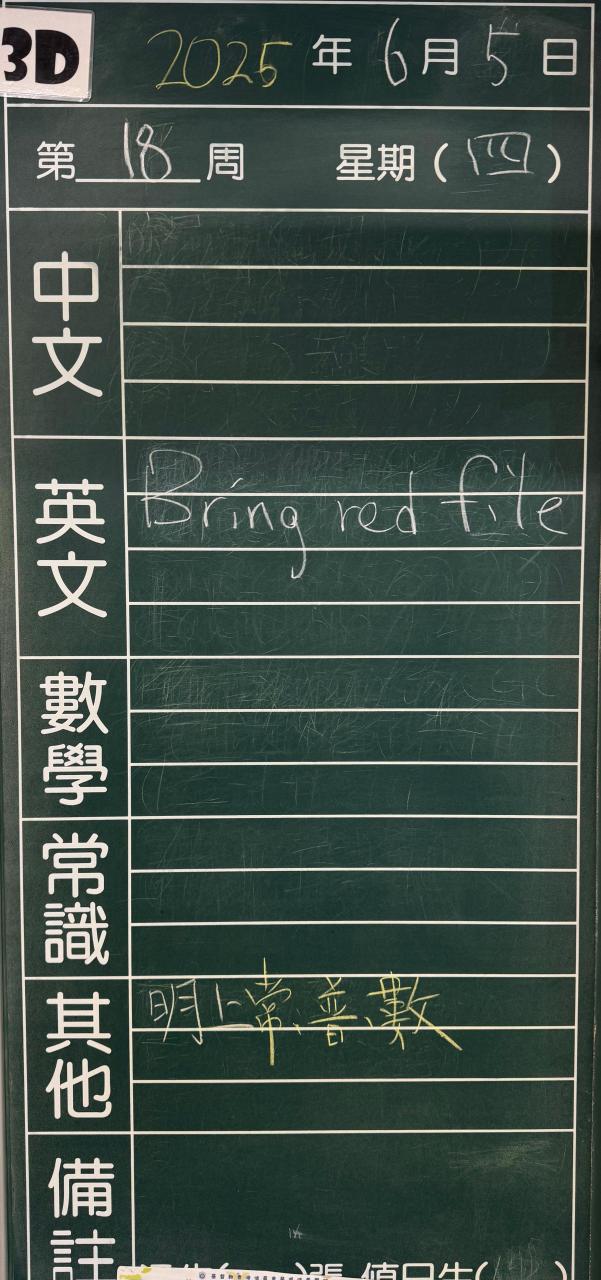 3D
2025年6月5日
第18周 星期(四)
中文
英文
Bring red file
數學
常識
其他
明上常、普、數
備註
張 值日生(